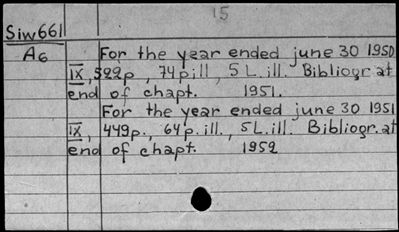 15
Siw661
A6 For the year ended june 30 1950
IX, 522p, 74p ill, 5 L. ill. Bibliogr. at
end of chapt. 1951.
For the year ended june 30 1951
IX, 449p., 64p. ill., 5 L. ill. Bibliogr. at
end of chapt. 1952